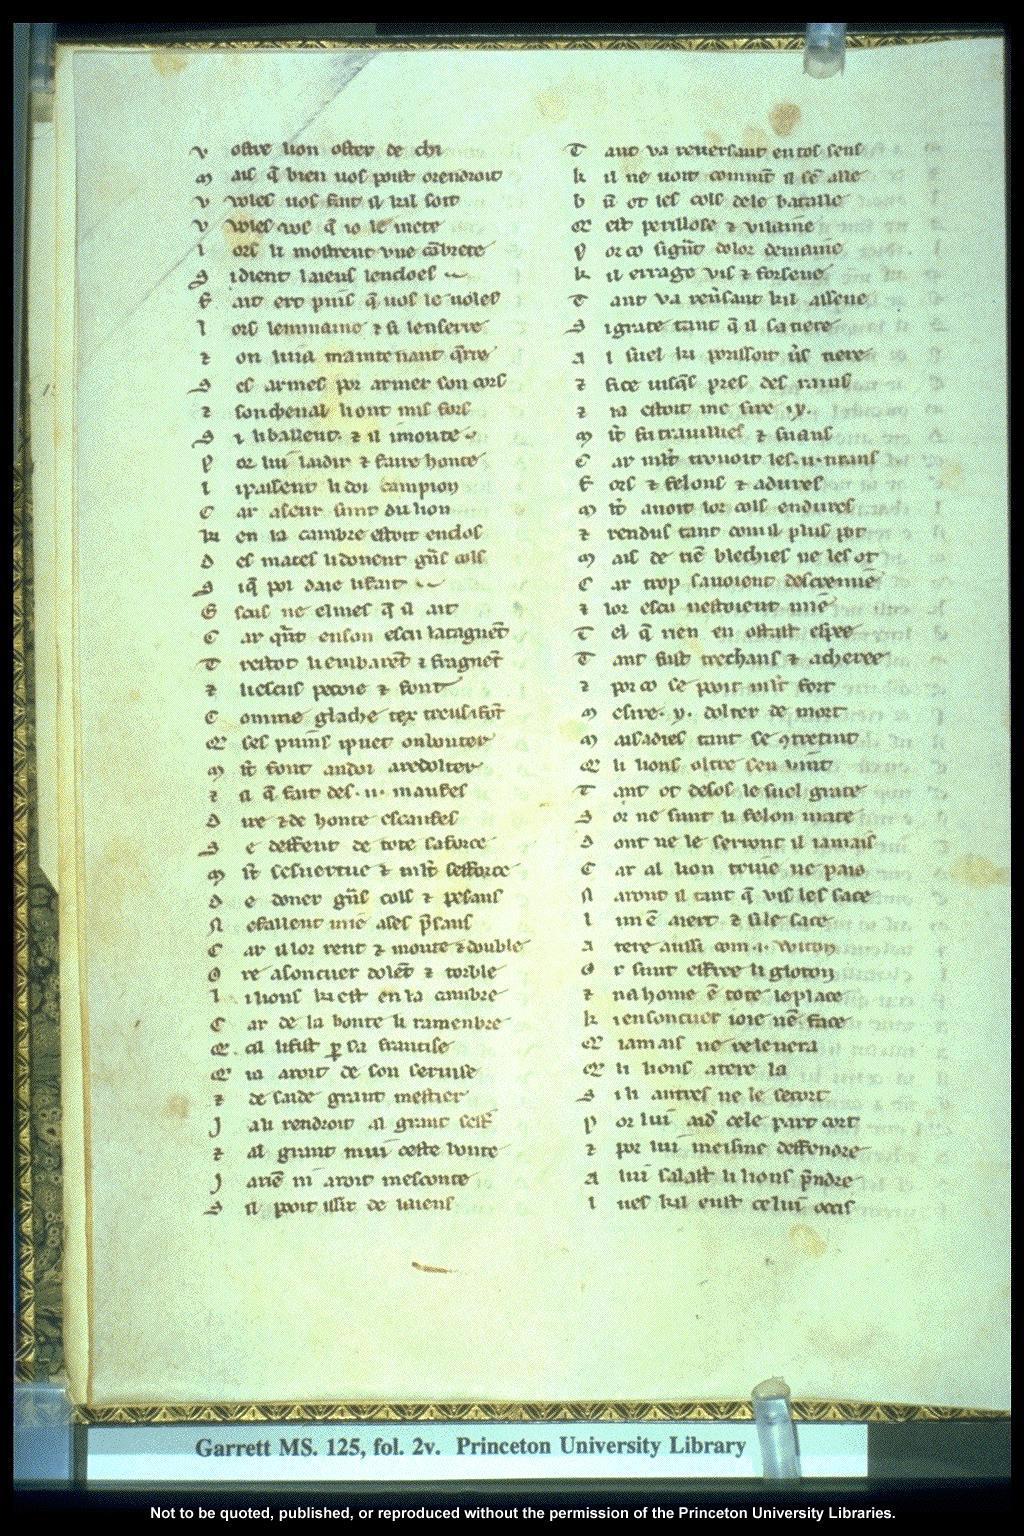 V ostre lion oster de chi
M ais q̄ bien uos poist orendroit
V ooles uos fait il kil soit
V oles uos q̄ io le mete
L ors li mostrent vne cābrete
S idient laiens lencloes
F ait ert puis q̄ uos le uoles
L ors lenmaine ⁊ si lenserre
⁊ on lui ua maintenant q̄rre
S es armes por armer son cors
⁊ son cheual li ont mis fors
S i li baillent ⁊ il i monte
P or lui laidir ⁊ faire honte
L i passent li doi campion
C ar aseur sunt du lion
K i en la cambre estoit enclos
D es maces li donent gn̄s cols
S i q̄ por daie li fait
E scus ne elmes q̄ il ait
C ar qn̄t en son escu lataignēt
T restot li enbarēt ⁊ fraignēt
⁊ li escus pecoie ⁊ font
C omme glache
M lt̄ font andoi a redolter
⁊ il q̄ fait des .ii. maufes
D ire ⁊ de honte escaufes
S e deffent de tote sa force
M lt̄ sesuertue ⁊ mlt̄ sefforce
D e doner gn̄s cols ⁊ pesans
N e fallent mie a ses p̄sans
C ar il lor rent ⁊ monte ⁊ double
O re a son cuer dolēt ⁊ torble
L i lions ki est en la cambre
C ar de la bonte li ramenbre
Q cil li fist ꝑ sa francise
Q ia aroit de son seruise
⁊ de saide grant mestier
J a li rendroit al grant sest̄
⁊ al grant mui ceste bonte
J a nē ni aroit mesconte
S il pooit issir de laiens
T ant va reuersant en tos sens
K il ne uoit comment il sē alle
B n̄ ot les cols dele bataille
Q est perillose ⁊ vilaine
P or co si gn̄t dolor demaine
K il errage vis ⁊ forsene
T ant va reūsant kil assene
S i grate tant q̄ il sa tiere
A l suel ki porrissoit ūs tiere
⁊ fice iusq̄s pres des rains
⁊ ia estoit me sire .y.
M lt̄ fu trauillies ⁊ suans
C ar mlt̄ trouoit les .ii. tirans
F ors ⁊ felons ⁊ adures
M lt̄ auoit lor cols endures
⁊ rendus tant com il plus pot
M ais de riē blechies ne les ot
C ar trop sauoient descremie
⁊ lor escu nestoient mie
T el q̄ rien en ostast espee
T ant fust trechans ⁊ acheree
⁊ por co se pooit mlt̄ fort
M esire .y. dolter de mort
M ais ades tant se ꝯtretint
Q li lions oltre sen vint
T ant ot desos le suel grate
S or ne sunt li felon mate
D ont ne le seront il iamais
C ar al lion triue ne pais
N aront il tant q̄ vis les sace
L un ē aiert ⁊ si le sace
A tere ausi com .i. viron
O r sunt effree li gloton
⁊ na home ē tote le place
K i en son cuer ioie nē face
Q iamais ne releuera
Q li lions a tere la
S i li autres ne le secort
P or lui aid̄ cele part cort
⁊ por lui meisme deffendre
A lui salast li lions p̄ndre
L ues kil eust celui ocis
Garrett MS. 125, fol. 2v. Princeton University Library
Not to be quoted, published, or reproduced without the permission of the Princeton University Libraries.